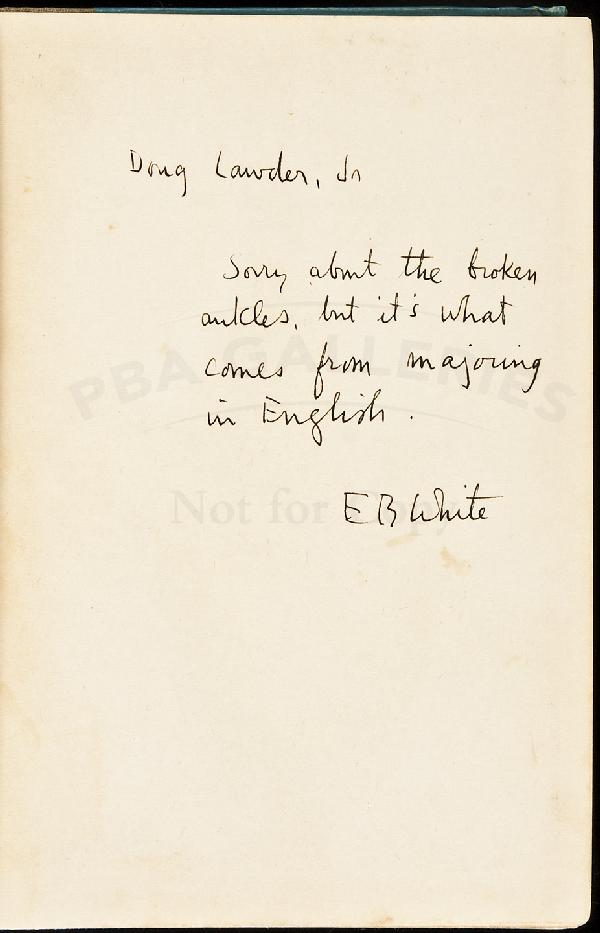 Doug Lawder, Jr
Sorry about the broken
ankles, but it's what
comes from majoring
PBA GALLERIES
in English.
Not for Copy
E B White